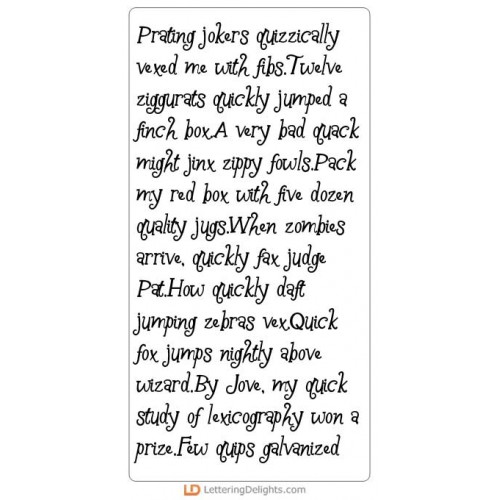 Prating jokers quizzically
vexed me with fibs.Twelve
ziggurats quickly jumped a
finch box.A very bad quack
might jinx zippy fowls.Pack
my red box with five dozen
quality jugs.When zombies
arrive, quickly fax judge
Pat.How quickly daft
jumping zebras vex.Quick
fox jumps nightly above
wizard.By Jove, my quick
study of lexicography won a
prize.Few quips galvanized
LD LetteringDelights.com